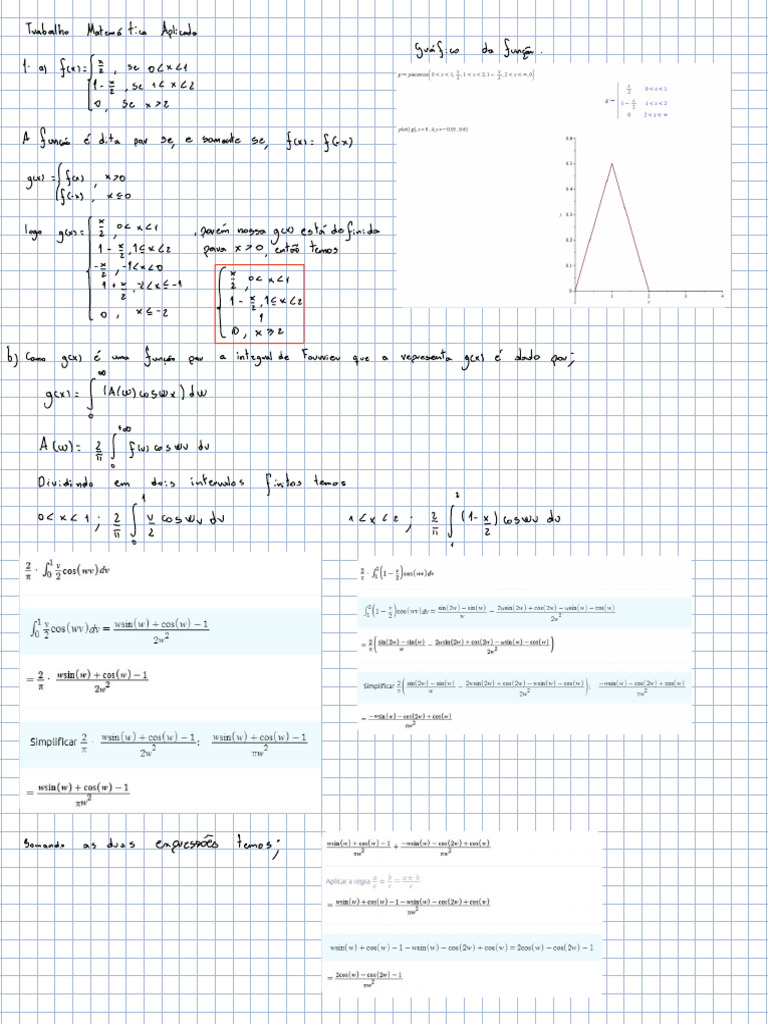 Trabalho Matemática Aplicada
1. a) f(x) = { x/2 , se 0 < x < 1
1 - x/2 , se 1 < x < 2
0, se x > 2
A função é dita par se, e somente se, f(x) = f(-x)
g(x) = { f(x) , x > 0
f(-x) , x ≤ 0
logo g(x) = { x/2 , 0 < x < 1
1 - x/2 , 1 ≤ x < 2
-x/2 , -1 < x < 0
1 + x/2 , -2 < x ≤ -1
0 , x ≤ -2
, porém nossa g(x) está definida
para x > 0, então temos
{ x/2 , 0 < x < 1
1 - x/2 , 1 ≤ x < 2
0 , x ≥ 2
Gráfico da função.
g := piecewise(0 < x < 1, x/2, 1 < x < 2, 1 - x/2, 2 < x < ∞, 0)
g := { x/2 0 < x < 1
1 - x/2 1 < x < 2
0 2 < x < ∞
0.6
0.5
0.4
0.3
0.2
0.1
0
0 1 2 3 4
b) Como g(x) é uma função par a integral de Fourrier que a representa g(x) é dado por;
g(x) = ∫₀^∞ (A(w) cos wx) dw
A(w) = 2/π ∫₀^{+∞} f(v) cos wv dv
Dividindo em dois intervalos finitos temos
0 < x < 1 ; 2/π ∫₀¹ v/2 cos wv dv
1 < x < 2 ; 2/π ∫₁² (1 - x/2) cos wv dv
2/π · ∫₀¹ v/2 cos(wv)dv
∫₀¹ v/2 cos(wv)dv = (wsin(w) + cos(w) − 1)/(2w²)
= 2/π · (wsin(w) + cos(w) − 1)/(2w²)
Simplificar 2/π · (wsin(w) + cos(w) − 1)/(2w²): (wsin(w) + cos(w) − 1)/(πw²)
= (wsin(w) + cos(w) − 1)/(πw²)
2/π · ∫₁²(1 − v/2)cos(wv)dv
∫₁²(1 − v/2)cos(wv)dv = (sin(2w) − sin(w))/w − (2wsin(2w) + cos(2w) − wsin(w) − cos(w))/(2w²)
= 2/π ((sin(2w) − sin(w))/w − (2wsin(2w) + cos(2w) − wsin(w) − cos(w))/(2w²))
Simplificar 2/π ((sin(2w) − sin(w))/w − (2wsin(2w) + cos(2w) − wsin(w) − cos(w))/(2w²)): (−wsin(w) − cos(2w) + cos(w))/(πw²)
= (−wsin(w) − cos(2w) + cos(w))/(πw²)
Somando as duas expressões temos;
(wsin(w) + cos(w) − 1)/(πw²) + (−wsin(w) − cos(2w) + cos(w))/(πw²)
Aplicar a regra a/c ± b/c = (a ± b)/c
= (wsin(w) + cos(w) − 1 − wsin(w) − cos(2w) + cos(w))/(πw²)
wsin(w) + cos(w) − 1 − wsin(w) − cos(2w) + cos(w) = 2cos(w) − cos(2w) − 1
= (2cos(w) − cos(2w) − 1)/(πw²)